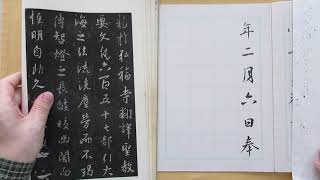 年二月六日奉
敕於弘福寺翻譯聖教
要文凡六百五十七部引大
海之法流洗塵勞而不竭
傳智燈之長焰皎幽闇而
恒明自非久